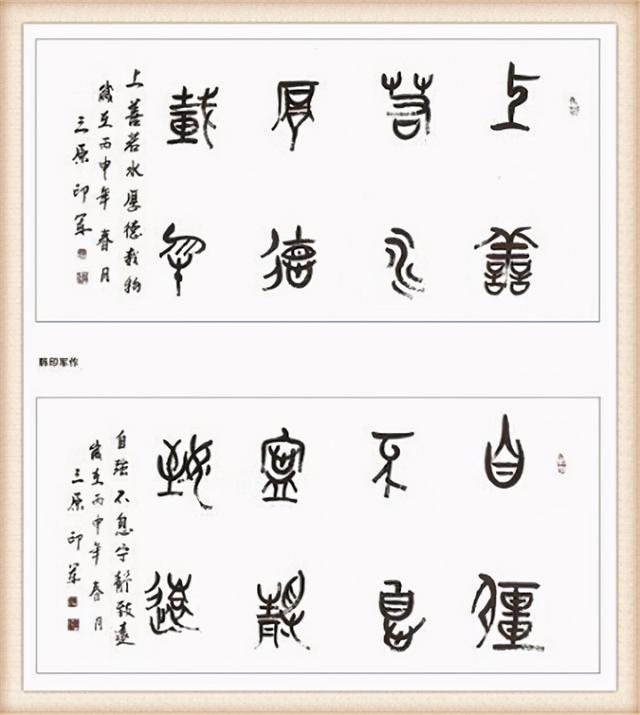 上善
若水
厚德
載勿
上善若水厚德載物
歲在丙申年春月
三原印军
韩印军作
自彊
不息
寧靜
致遠
自強不息宁靜致遠
歲在丙申年春月
三原印军